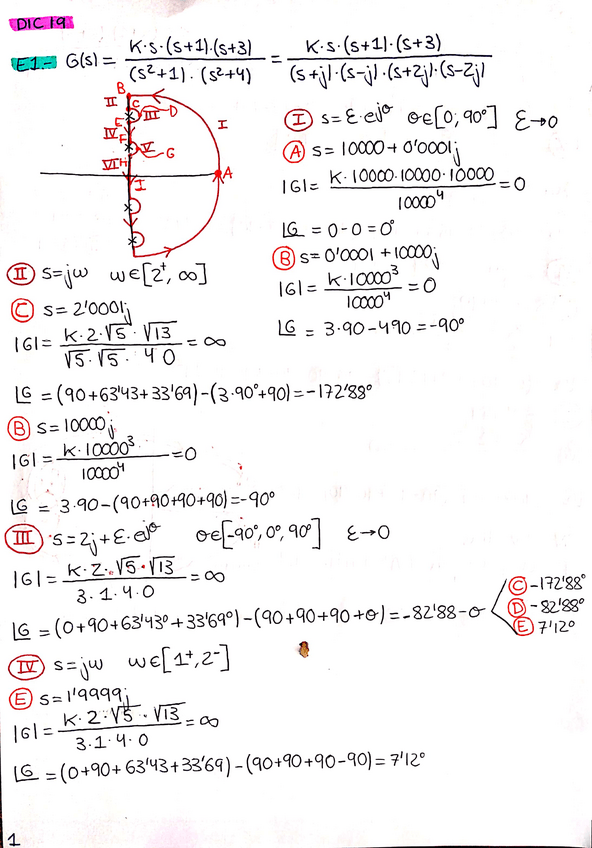 DIC 19
E1.- G(s) = K·s·(s+1)·(s+3) / (s²+1)·(s²+4) = K·s·(s+1)·(s+3) / (s+j)·(s-j)·(s+2j)·(s-2j)
B
II
C
III
D
I
E
IV
F
V
G
VI
H
A
I
I s=ε·e^jθ θ∈[0,90°] ε→0
A s=10000+0'0001j
|G|= K·10000·10000·10000 / 10000⁴ =0
∠G = 0-0=0°
B s=0'0001+10000j
|G|= K·10000³ / 10000⁴ =0
∠G = 3·90-490=-90°
II s=jω ω∈[2⁺,∞]
C s=2'0001j
|G|= K·2·√5·√13 / √5·√5·40 =∞
∠G =(90+63'43+33'69)-(3·90°+90)=-172'88°
B s=10000j
|G|= K·10000³ / 10000⁴ =0
∠G = 3·90-(90+90+90+90)=-90°
III s=2j+ε·e^jθ θ∈[-90°,0°,90°] ε→0
|G|= K·2·√5·√13 / 3·1·4·0 =∞
∠G =(0+90+63'43°+33'69°)-(90+90+90+θ)=-82'88-θ
C -172'88°
D -82'88°
E 7'12°
IV s=jω ω∈[1⁺,2⁻]
E s=1'9999j
|G|= K·2·√5·√13 / 3·1·4·0 =∞
∠G =(0+90+63'43+33'69)-(90+90+90-90)=7'12°
1